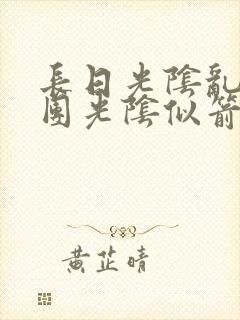 長日光陰亂
團光陰似箭
黃芷晴